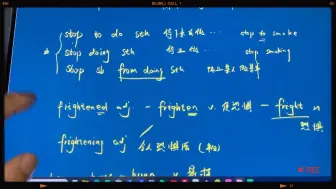 stop to do sth 停下来去做… stop to smoke
* stop doing sth 停止做… stop smoking
stop sb from doing sth 阻止某人做某事
frightened adj. - frighten v. 使恐惧 - fright n
恐惧
frightening adj 令人恐惧的